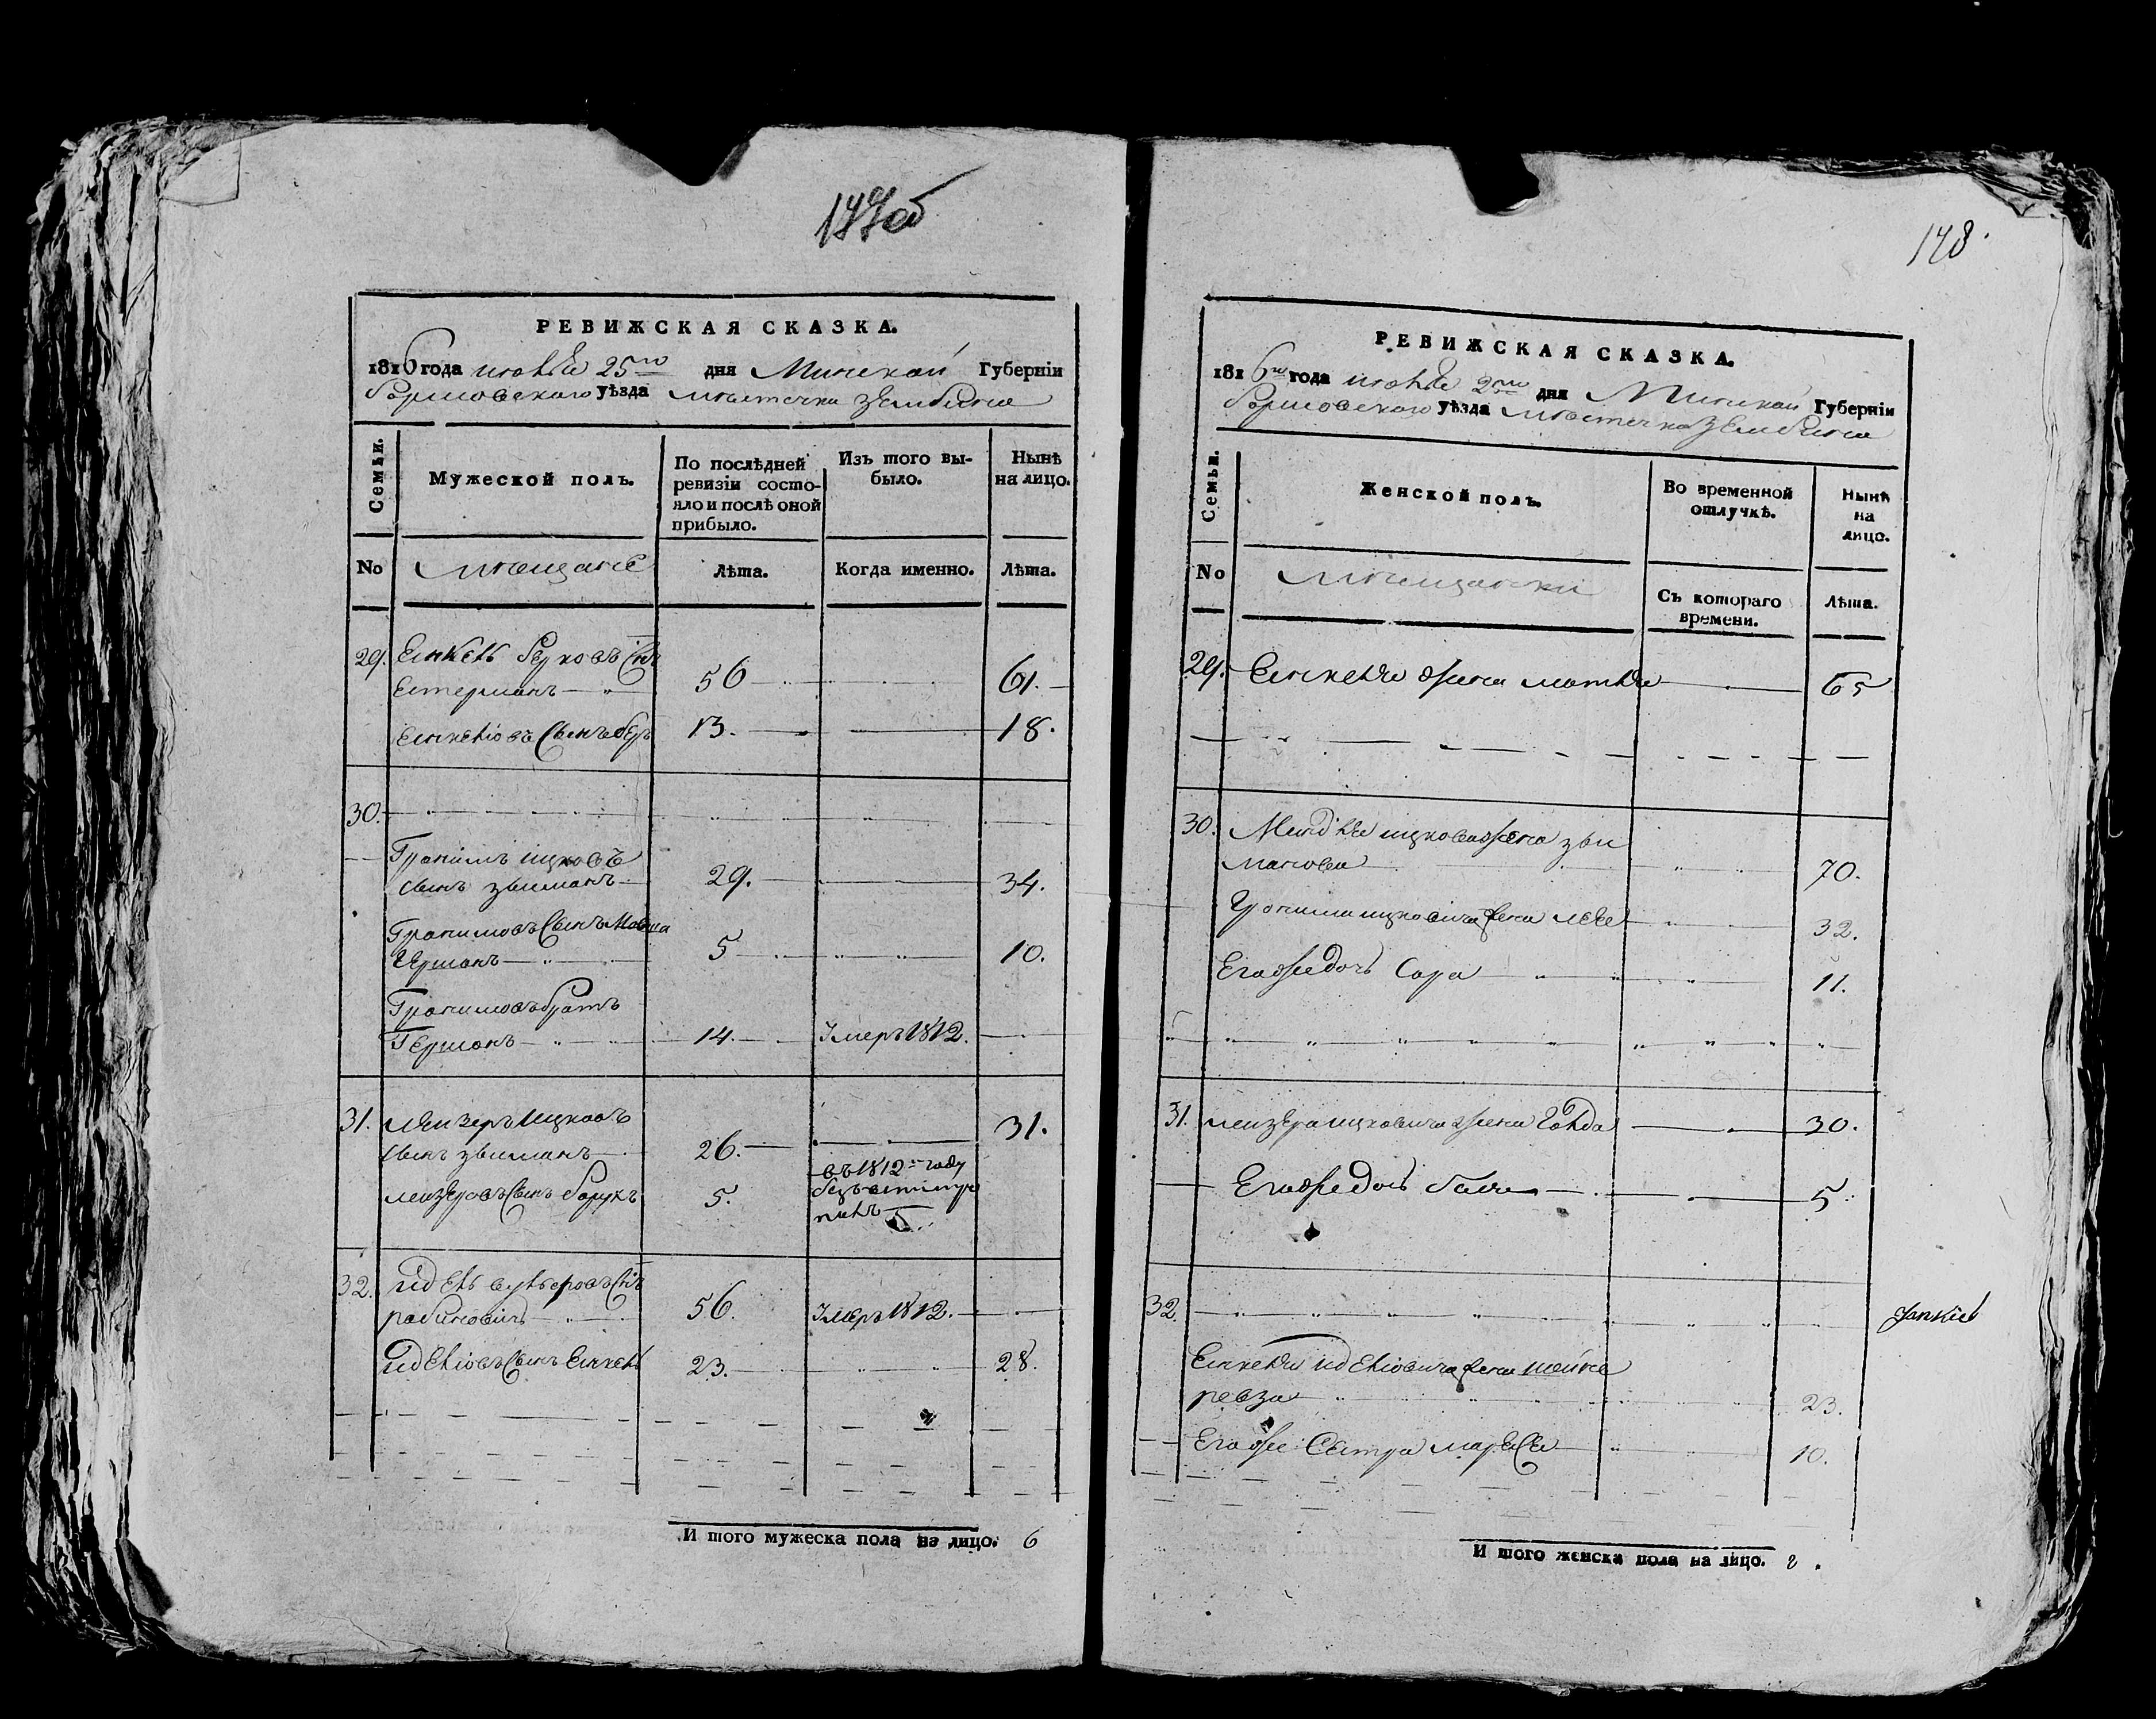 177об
РЕВИЖСКАЯ СКАЗКА.
1816 года июля 25го дня Минской Губерніи
Борисовского уѣзда местечка Зембина
Семьи.
Мужеской полъ.
По послѣдней ревизіи состояло и послѣ оной прибыло.
Изъ того выбыло.
Нынѣ на лицо.
No
мещане
Лѣта.
Когда именно.
Лѣта.
29. Янкель Берковъ Снъ
Естерманъ 56 61.
Янкеліовъ Сынъ Бер 13. 18.
30.
Гронимъ Ицковъ
Сынъ Звиманъ 29. 34.
Гронимовъ Сынъ Мовша
Гершонъ 5 10.
Гронимовъ братъ
Гершонъ 14. Умеръ 1812.
31. Лейзеръ Ицковъ
Сынъ Звиманъ 26. 31.
Лейзеровъ Сынъ Борухъ 5. въ 1812 году
32. Идель Вульфовъ Снъ
Рабиновичъ 56. Умеръ 1812.
Иделіовъ Сынъ Янкель 23. 28.
И того мужеска пола на лицо. 6
178.
РЕВИЖСКАЯ СКАЗКА.
1816го года июля 2 дня Минской Губерніи
Борисовского уѣзда местечка Зембина
Семьи.
Женской полъ.
Во временной отлучкѣ.
Нынѣ на лицо.
No
мещанки
Съ котораго времени.
Лѣта.
29. Янкеля жена 65
30. Ицкова жена Зви
манова 70.
Гронима Ицковича жена Лея 32.
Егожедочь Сора 11.
31. Лейзера Ицковича жена Голда 30.
Егожедочь 5.
32.
Янкеля Иделіовича жена
ревза 23.
Егоже Сестра 10.
И того женска пола на лицо. 8.